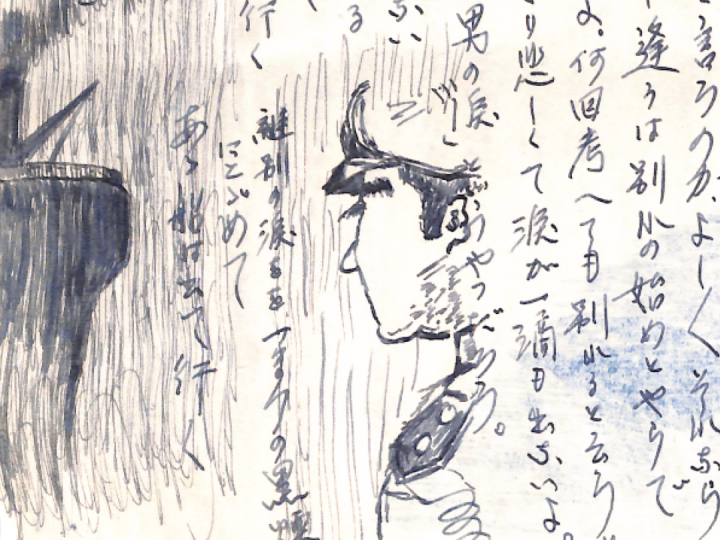 言うのかよし、それなら
逢うは別れの始めとやらで
よ。何回考へても別れると云う
り悲しくて涙が一滴も出ないよ。
男の涙
どうやつだらう。
ない
る
行く
離別の涙を
の黒煙
にとゞめて
あゝ船は去って行く